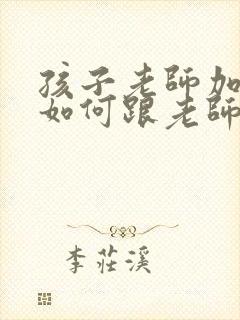 孩子老師加
如何跟老師
李莊溪